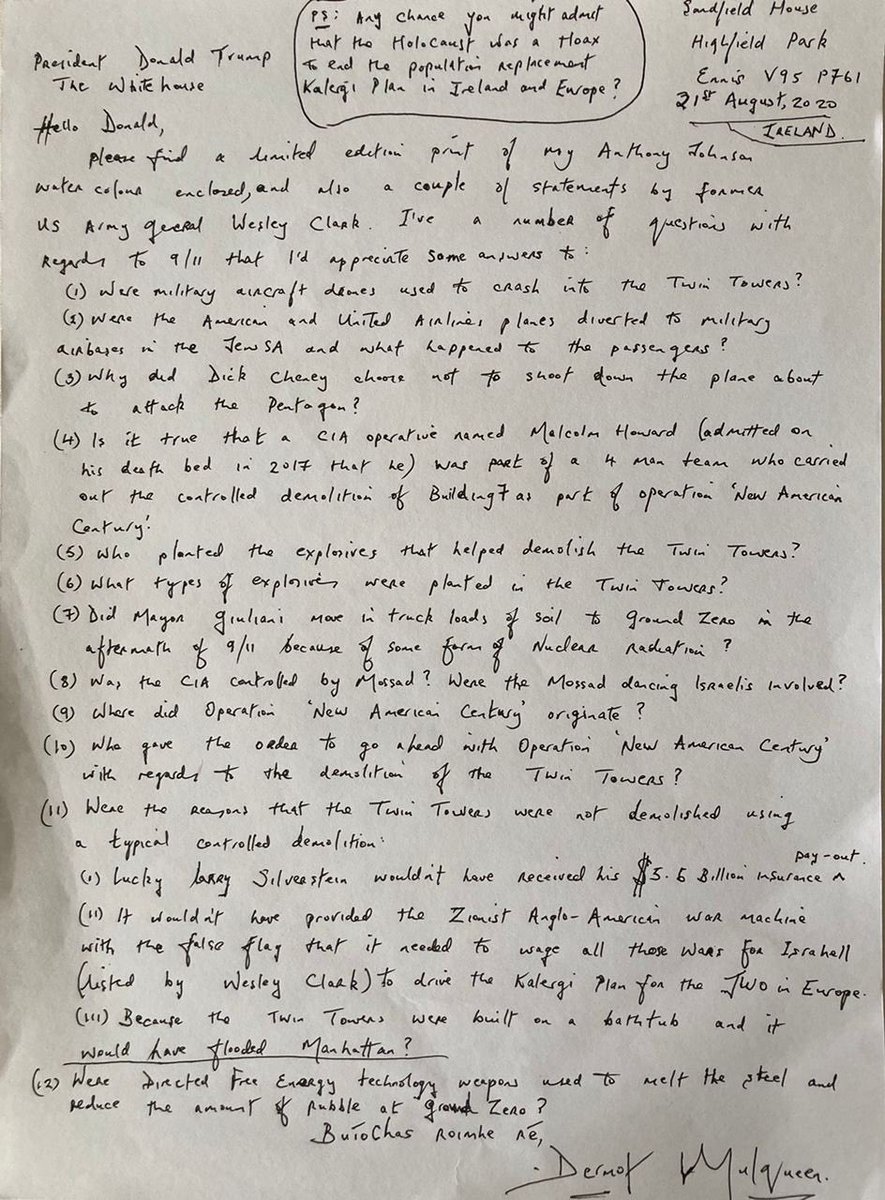 PS: Any chance you might admit
that the Holocaust was a Hoax
to end the population replacement
Kalergi Plan in Ireland and Europe?
Sandfield House
Highfield Park
Ennis V95 P761
21st August, 2020
IRELAND.
President Donald Trump
The Whitehouse
Hello Donald,
please find a limited edition print of my Anthony Johnson
water colour enclosed, and also a couple of statements by former
US Army general Wesley Clark. I've a number of questions with
regards to 9/11 that I'd appreciate some answers to:
(1) Were military aircraft drones used to crash into the Twin Towers?
(2) Were the American and United Airlines planes diverted to military
airbases in the JewSA and what happened to the passengers?
(3) Why did Dick Cheney choose not to shoot down the plane about
to attack the Pentagon?
(4) Is it true that a CIA operative named Malcolm Howard (admitted on
his death bed in 2017 that he) was part of a 4 man team who carried
out the controlled demolition of Building 7 as part of operation 'New American
Century'.
(5) Who planted the explosives that helped demolish the Twin Towers?
(6) What types of explosives were planted in the Twin Towers?
(7) Did Mayor Giuliani move in truck loads of soil to Ground Zero in the
aftermath of 9/11 because of some form of Nuclear radiation?
(8) Was the CIA controlled by Mossad? Were the Mossad dancing Israelis involved?
(9) Where did Operation 'New American Century' originate?
(10) Who gave the order to go ahead with Operation 'New American Century'
with regards to the demolition of the Twin Towers?
(11) Were the reasons that the Twin Towers were not demolished using
a typical controlled demolition:
(i) Lucky Larry Silverstein wouldn't have received his $3.5 Billion insurance pay-out.
(ii) It wouldn't have provided the Zionist Anglo-American war machine
with the false flag that it needed to wage all those wars for Israhell
(listed by Wesley Clark) to drive the Kalergi Plan for the JWO in Europe.
(iii) Because the Twin Towers were built on a bathtub and it
would have flooded Manhattan?
(12) Were Directed Free Energy technology weapons used to melt the steel and
reduce the amount of rubble at ground Zero?
Buíochas roimhe ré,
Dermot Mulqueen.